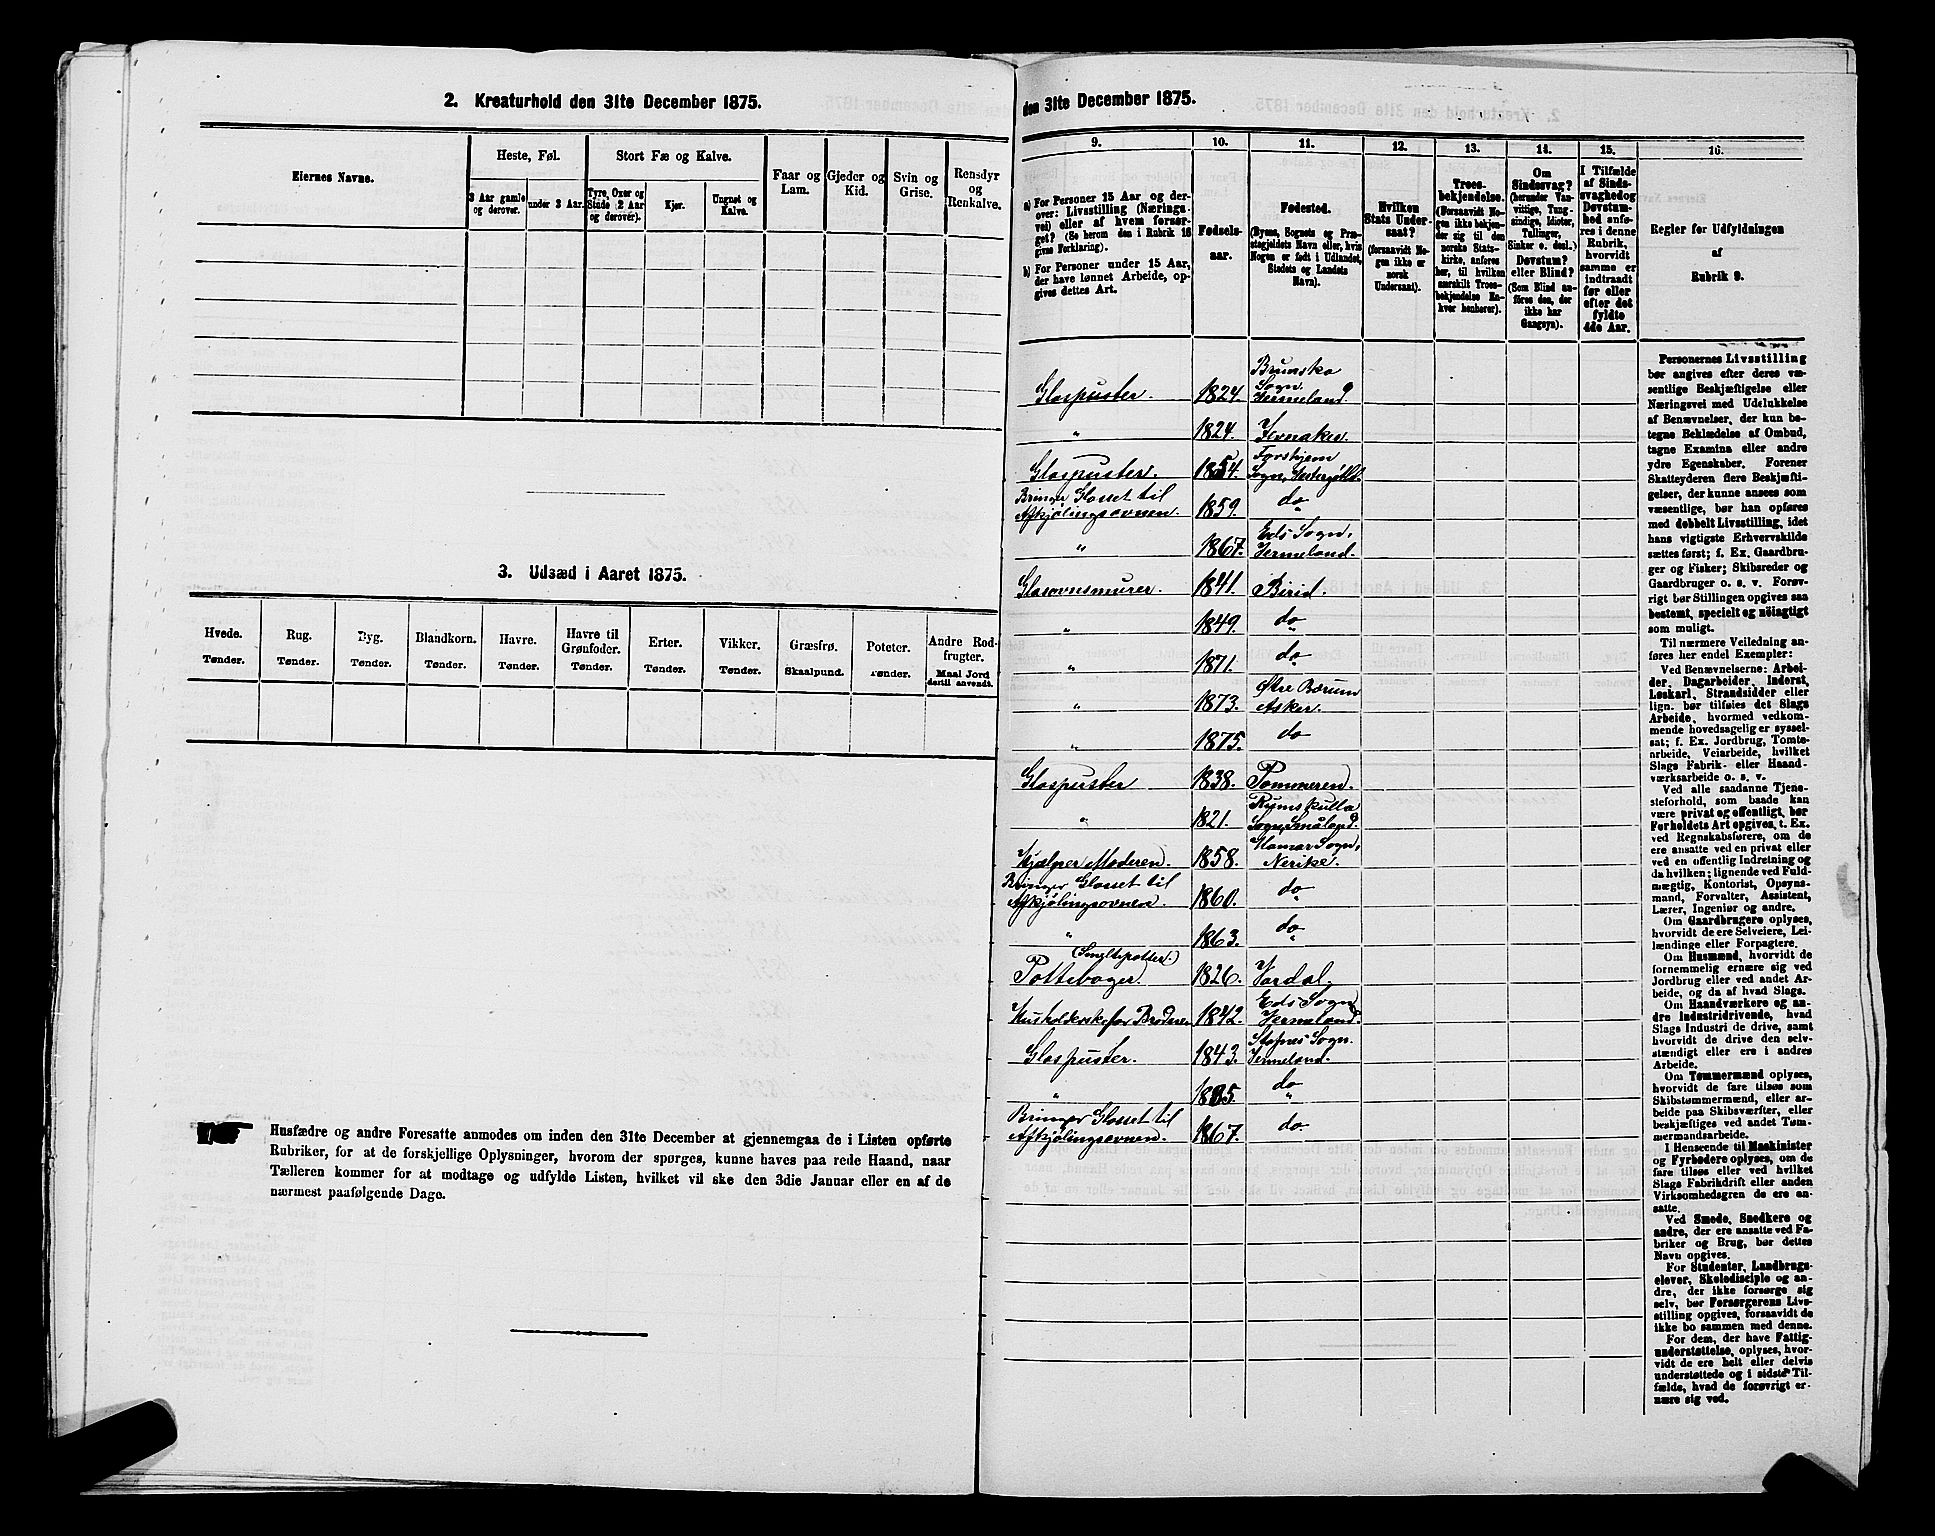 2. Kreaturhold den 31te December 1875.
Eiernes Navne.
Heste, Føl.
3 Aar gamle og derover.
under 3 Aar.
Stort Fæ og Kalve.
Tyre, Oxer og Stude (2 Aar og derover).
Kjør.
Ungnøt og Kalve.
Faar og Lam.
Gjeder og Kid.
Svin og Grise.
Rensdyr og Renkalve.
3. Udsæd i Aaret 1875.
Hvede. Rug. Byg. Blandkorn. Havre. Havre til Grønfoder. Erter. Vikker. Græsfrø. Poteter. Andre Rodfrugter.
Tønder. Tønder. Tønder. Tønder. Tønder. Tønder. Tønder. Tønder. Skaalpund. Tønder. Maal Jord dertil anvendt.
Husfædre og andre Foresatte anmodes om inden den 31te December at gjennemgaa de i Listen opførte
Rubriker, for at de forskjellige Oplysninger, hvorom der spørges, kunne haves paa rede Haand, naar
Tælleren kommer for at modtage og udfylde Listen, hvilket vil ske den 3die Januar eller en af de
nærmest paafølgende Dage.
den 31te December 1875.
9. 10. 11. 12. 13. 14. 15. 16.
a) For Personer 15 Aar og derover: Livsstilling (Næringsvei) eller af hvem forsørget? (Se herom den i Rubrik 16 givne Forklaring).
b) For Personer under 15 Aar, der have lønnet Arbeide, opgives dettes Art.
Fødselsaar.
Fødested.
(Byens, Sognets og Præstegjeldets Navn eller, hvis Nogen er født i Udlandet, Stedets og Landets Navn).
Hvilken Stats Undersaat?
(forsaavidt Nogen ikke er norsk Undersaat).
Troesbekjendelse.
(Forsaavidt Nogen ikke bekjender sig til den norske Statskirke, anføres her, til hvilken særskilt Troesbekjendelse Enhver henhører).
Om Sindssvag? (herunder Vanvittige, Tungsindige, Idioter, Tullinger, Sinker o. desl.) Døvstum? eller Blind? (Som Blind anføres den, der ikke har Gangsyn).
I Tilfælde af Sindssvaghed og Døvstumhed anføres i denne Rubrik, hvorvidt samme er indtraadt før eller efter det fyldte 4de Aar.
Regler for Udfyldningen
af
Rubrik 9.
Glaspuster. 1824. Brunsko Sogn. Vermeland.
" 1824. Jevnaker.
Glaspuster. 1854. Forshjem Sogn, Vestergøtld.
Bringer Glasset til Afkjølingsovnen. 1859. do
" 1867. Eds Sogn, Vermeland.
Glasovnsmurer. 1841. Birid.
" 1849. do
" 1871. do
" 1873. Østre Bærum Asker.
" 1875. do
Glaspuster 1838. Pommeren.
" 1821. Rumskulla Sogn, Småland.
Hjælper Moderen. 1858. Hamar Sogn, Nerike.
Bringer Glasset til Afkjølingsovnen. 1860. do
" 1863. do
Pottebager. (Smeltepotter.) 1826. Vardal.
Husholderske for Broderen 1842. Eds Sogn Vermeland.
Glaspuster. 1843. Stafnes Sogn. Vermeland.
" do
Bringer Glasset til Afkjølingsovnen. 1867. do
Personernes Livsstilling
bør angives efter deres væsentlige
Beskjæftigelse eller
Næringsvei med Udelukkelse
af Benævnelser, der kun betegne
Beklædelse af Ombud,
tagne Examina eller andre
ydre Egenskaber. Forener
Skatteyderen flere Beskjæftigelser,
der kunne ansees som
væsentlige, bør han opføres
med dobbelt Livsstilling, idet
hans vigtigste Erhvervskilde
sættes først; f. Ex. Gaardbruger
og Fisker; Skibsreder og
Gaardbruger o. s. v. Forøvrigt
bør Stillingen opgives saa
bestemt, specielt og nöiagtigt
som muligt.
Til nærmere Veiledning anføres
her endel Exempler:
Ved Benævnelserne: Arbeider,
Dagarbeider, Inderst,
Løskarl, Strandsidder eller
lign. bør tilføies det Slags
Arbeide, hvormed vedkommende
hovedsagelig er sysselsat;
f. Ex. Jordbrug, Tomtearbeide,
Veiarbeide, hvilket
Slags Fabrik- eller Haandværksarbeide
o. s. v.
Ved alle saadanne Tjenesteforhold,
som baade kan
være privat og offentligt, bør
Forholdets Art opgives, t. Ex.
ved Regnskabsførere, om de
ere ansatte ved en privat eller
ved en offentlig Indretning og
da hvilken; lignende ved Fuldmægtig,
Kontorist, Opsynsmand,
Forvalter, Assistent,
Lærer, Ingeniør og andre.
Om Gaardbrugere oplyses,
hvorvidt de ere Selveiere, Leilændinge
eller Forpagtere.
Om Husmænd, hvorvidt de
fornemmelig ernære sig ved
Jordbrug eller ved andet Arbeide,
og da af hvad Slags.
Om Haandværkere og andre
Industridrivende, hvad
Slags Industri de drive, samt
hvorvidt de drive den selvstændigt
eller ere i andres
Arbeide.
Om Tømmermænd oplyses,
hvorvidt de fare tilsøs som
Skibstømmermænd, eller arbeide
paa Skibsværfter, eller
beskjæftiges ved andet Tømmermandsarbeide.
I Henseende til Maskinister
og Fyrbødere oplyses, om de
fare tilsøs eller ved hvilket
Slags Fabrikdrift eller anden
Virksomhedsgren de ere ansatte.
Ved Smede, Snedkere og
andre, der ere ansatte ved Fabriker
og Brug, bør dettes
Navn opgives.
For Studenter, Landbrugselever,
Skoledisciple og andre,
der ikke forsørge sig
selv, bør Forsørgerens Livsstilling
opgives, forsaavidt de
ikke bo sammen med denne.
For dem, der have Fattigunderstøttelse,
oplyses, hvorvidt
de ere helt eller delvis
understøttede og i sidste Tilfælde,
hvad de forøvrigt ernære
sig ved.